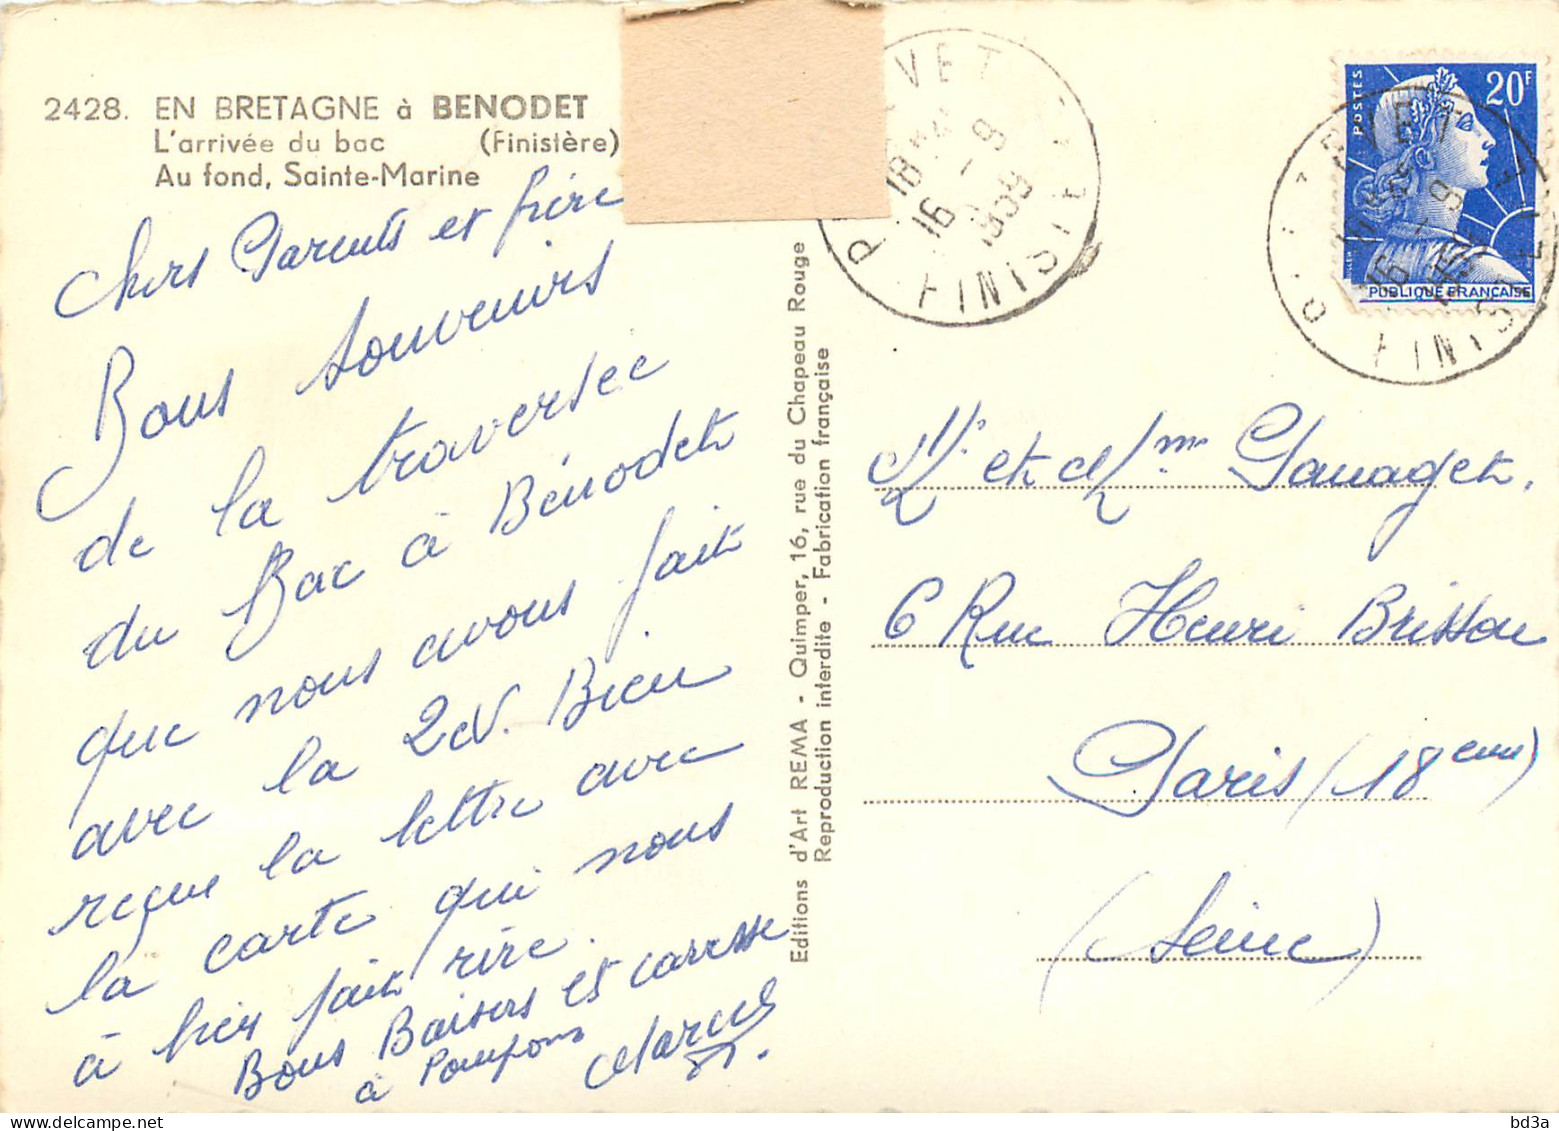 2428. EN BRETAGNE à BENODET
L'arrivée du bac (Finistère)
Au fond, Sainte-Marine
Chers Parents et frère
Bons souvenirs
de la traversée
du Bac à Bénodet
que nous avons fait
avec la 2cv. Bien
reçue la lettre avec
la carte qui nous
à bien fait rire.
Bons Baisers et caresse
à Pompons
Marcel
Editions d'Art REMA - Quimper, 16, rue du Chapeau Rouge
Reproduction interdite - Fabrication française
FINIS
18
16 - 9
1959
POSTES
20F
REPUBLIQUE FRANÇAISE
16 - 9
FINIST
Mr et Mme Ganaget.
6 Rue Henri Brisson
Paris (18eme)
(Seine)
bd3a